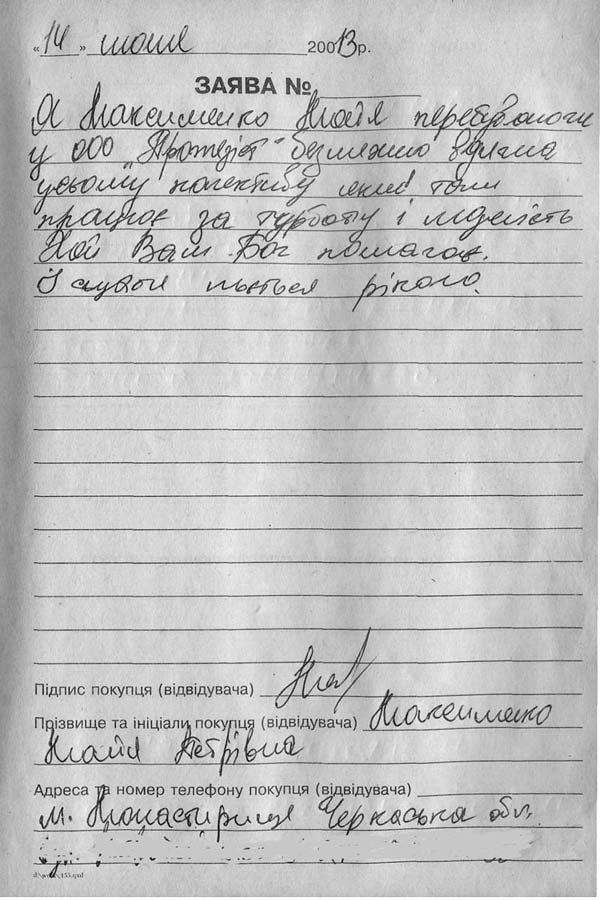 «14» июня 20013р.
ЗАЯВА №
Я Максименко Майя перебуваючи
у ООО „Протезіст" безмежно вдячна
усьому колективу який там
працює за турботу і мужність
Хай Вам Бог помагає.
І щастя ллється рікою.
Підпис покупця (відвідувача)
Прізвище та ініціали покупця (відвідувача) Максименко
Майя Петрівна
Адреса та номер телефону покупця (відвідувача)
м. Монастирище Черкаська обл.